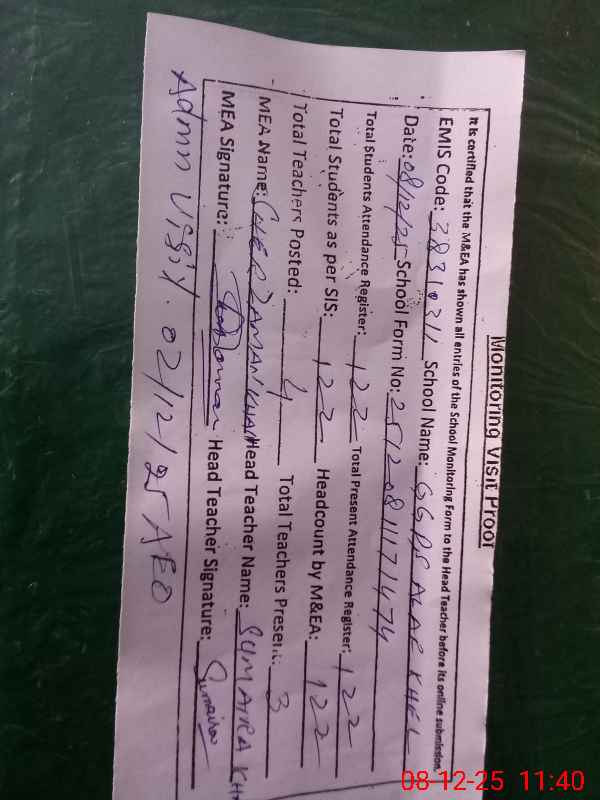 Monitoring Visit Proof
It is certified that the M&EA has shown all entries of the School Monitoring Form to the Head Teacher before its online submission.
EMIS Code: 38310311 School Name: GGPS ALAR KHEL
Date: 08/12/25 School Form No: 25120811171474
Total Students Attendance Register: 122 Total Present Attendance Register: 122
Total Students as per SIS: 122 Headcount by M&EA: 122
Total Teachers Posted: 4 Total Teachers Present: 3
MEA Name: SHER ZAMAN KHAN Head Teacher Name: SUMAIRA KH
MEA Signature: Head Teacher Signature: Sumaira
Admn Visit. 02/12/25 AEO
08-12-25 11:40